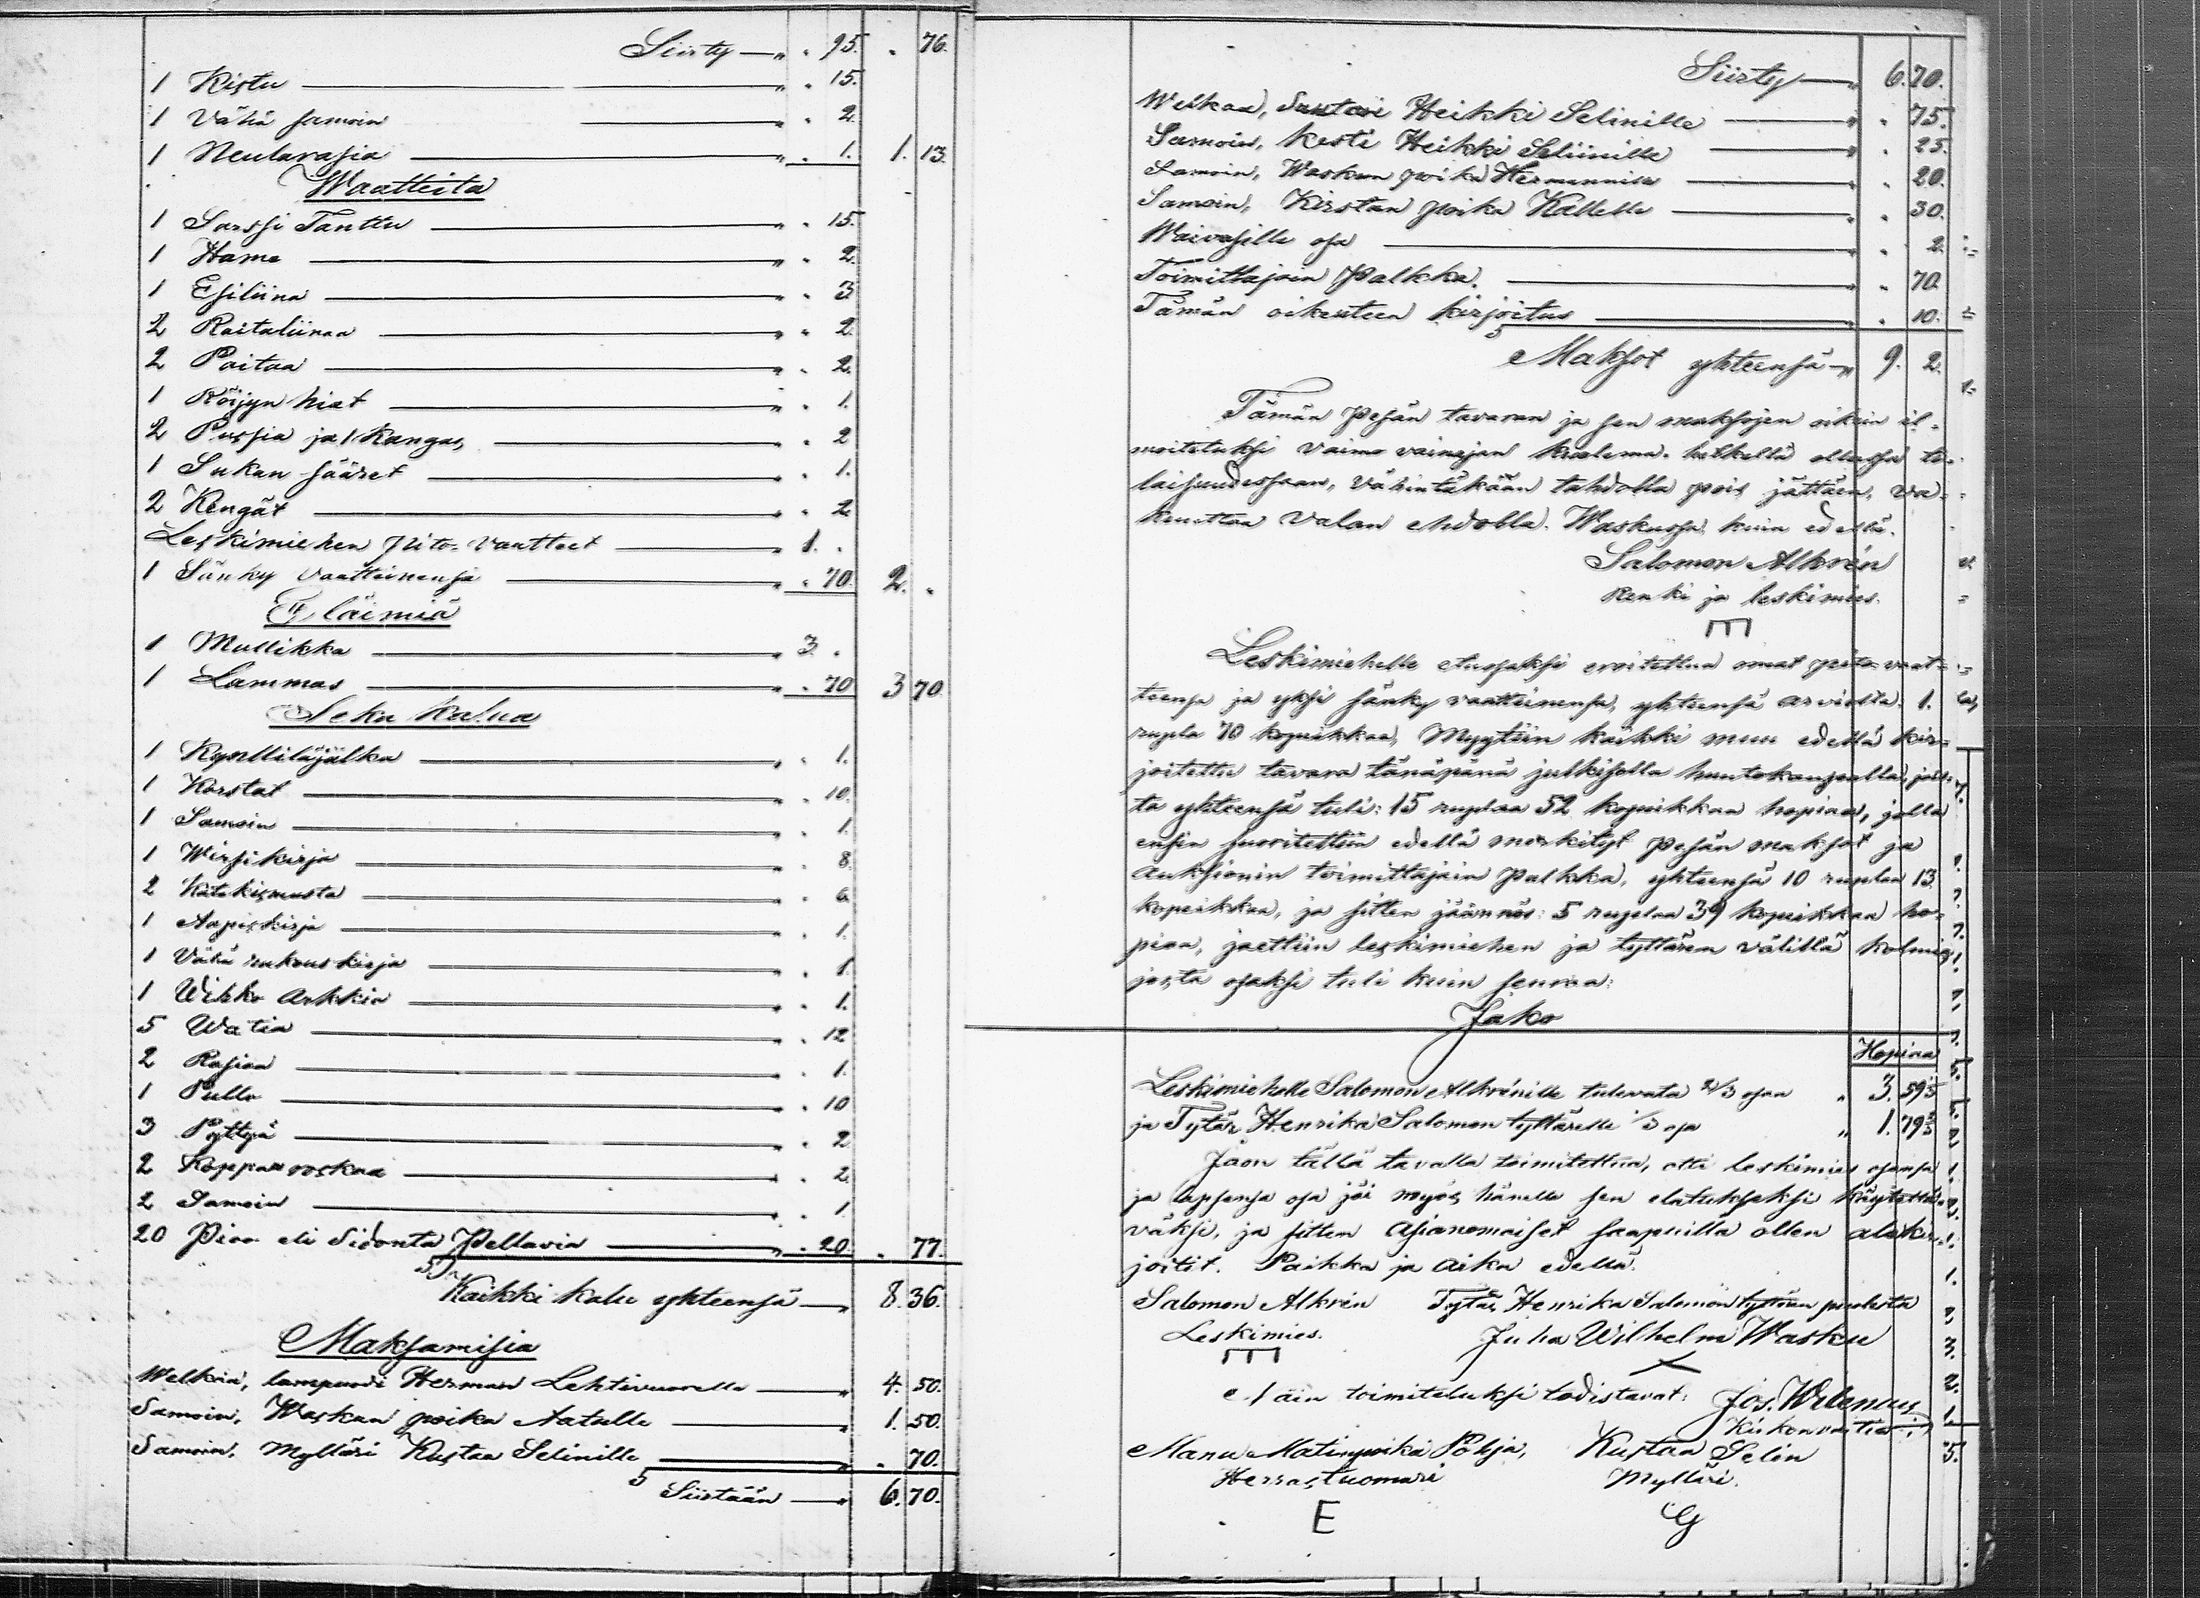 Siirty — " " 95. " 76.
1 Kistu — " " 15.
1 Vähä samoin — " " 2.
1 Neularasia — " " 1. 1. 13.
Waatteita
1 Sarssi Tanttu — " " 15.
1 Hame — " " 2.
1 Esiliina — " " 3
2 Raitaliinaa — " " 2.
2 Paitaa — " " 2.
1 Röijyn hiat — " " 1.
2 Pussia ja 1 Kangas, — " " 2
1 Sukan sääret — " " 1.
2 Kengät — " " 2
Leskimiehen pito-vaatteet — " 1. "
1 Sänky vaatteinensa — " " 70. 2. "
Eläimiä
1 Mullikka — " 3. "
1 Lammas — " " 70 3 70
Seka kalua
1 Kynttiläjalka — " " 1.
1 Korstat — " " 10.
1 Samoin — " " 1.
1 Wirsikirja — " " 8.
2 Katekismusta — " " 6.
1 Aapiskirja — " " 1.
1 Vähä rukous kirja — " " 1.
1 Wihko Arkkia — " " 1.
5 Watia — " " 12
2 Rasiaa — " " 1.
1 Pullo — " " 10
3 Pyttyä — " " 2
2 Koppa — " " 2.
2 Samoin — " " 1
20 Pioo eli Sidonta Pellavia — " " 20. " 77.
Kaikki kalu yhteensä — " 8. 36.
Maksamisia
Welkaa, lampuodi Herman Lehtivuorelle — " 4. 50.
Samoin, Waskan poika Aatulle — " 1. 50.
Samoin, Mylläri Kustaa Selinille — " " 70.
Siirtään — " 6. 70.
Siirty — " 6. 70.
Welkaa, Heikki Selinille — " " 75.
Samoin, Kesti Heikki Seliinille — " " 25.
Samoin, Waskun poika Hermannille — " " 20.
Samoin, Kirstan poika Kallelle — " " 30.
Waivasille osa — " " 2.
Toimittajain Palkka. — " " 70.
Tämän oikeuteen kirjoitus — " " 10.
Maksot yhteensä — " 9. 2.
Tämän pesän tavaran ja sen maksojen oikein il-
moitetuksi vaimo vainajan kuolema-hetkellä ollessa ti-
laisuudessaan, vähintäkään tahdolla pois jättäen, va-
kuuttaa valan ehdolla. Waskussa kuin edellä.
Salomon Alkrén
Renki ja leskimies.
Leskimiehelle etuosaksi eroitettua omat pito-vaat-
teensa ja yksi sänky vaatteinensa, yhteensä arviolta 1.
rupla 70 kopeikkaa, Myytiin kaikki muu edellä kir-
joitettu tavara tänäpänä julkisella huutokaupalla, jois-
ta yhteensä tuli: 15 ruplaa 52 kopeikkaa hopiaa, jolla
ensin suoritettiin edellä merkityt pesän maksot ja
Auksionin toimittajain palkka, yhteensä 10 ruplaa 13
kopeikkaa, ja sitten jäännös: 5 ruplaa 39 kopeikkaa ho-
piaa, jaettiin leskimiehen ja tyttären välillä kolmia,
josta osaksi tuli kuin seuraa:
Jako
Hopiaa
Leskimiehelle Salomon Alkrénille tulevata 2/3 osaa " 3. 59 1/3
ja Tytär Henrika Salomon tyttärelle 1/3 osa " 1. 79 2/3
Jaon tällä tavalla toimitettua, otti leskimies osansa
ja lapsensa osa jäi myös hänelle sen elatukseksi käytettä-
väksi, ja sitten Asianomaiset saapuilla ollen alakir-
joitit. Paikka ja Aika edellä.
Salomon Alkrén Tytär Henrika Salomon tyttären puolesta
Leskimies. Juha Wilhelm Wasku
Näin toimitetuksi todistavat: Jos. Wilenius
Kirkonvartia
Manu Matinpoika Pohja, Kustaa Selin
Herrastuomari Mylläri.
E G